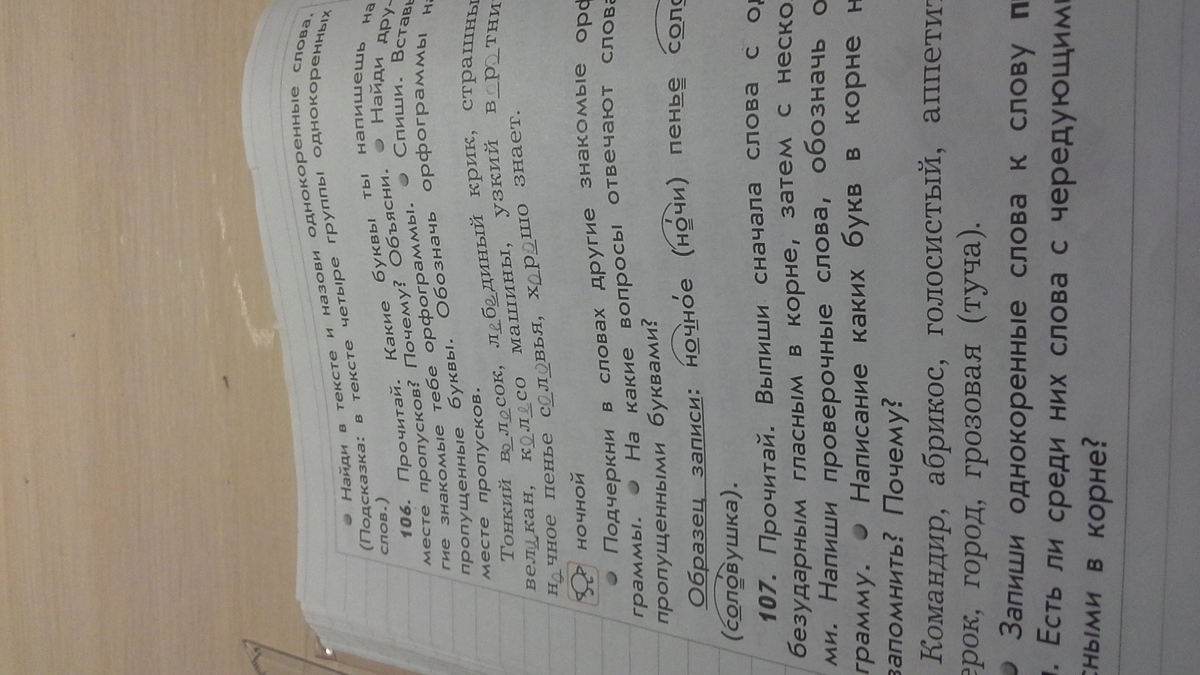 ● Найди в тексте и назови однокоренные слова.
(Подсказка: в тексте четыре группы однокоренных
слов.)
106. Прочитай. Какие буквы ты напишешь на
месте пропусков? Почему? Объясни. ● Найди дру-
гие знакомые тебе орфограммы. ● Спиши. Вставь
пропущенные буквы. Обозначь орфограммы на
месте пропусков.
Тонкий волосок, лебединый крик, страшны
великан, колесо машины, узкий воротни
ночное пенье соловья, хорошо знает.
ночной
● Подчеркни в словах другие знакомые орф
граммы. ● На какие вопросы отвечают слова
пропущенными буквами?
Образец записи: ночно́е (но́чи) пенье соло
(соло́вушка).
107. Прочитай. Выпиши сначала слова с од
безударным гласным в корне, затем с неско
ми. Напиши проверочные слова, обозначь о
грамму. ● Написание каких букв в корне н
запомнить? Почему?
Командир, абрикос, голосистый, аппетит
ерок, город, грозовая (туча).
● Запиши однокоренные слова к слову п
. Есть ли среди них слова с чередующими
сными в корне?